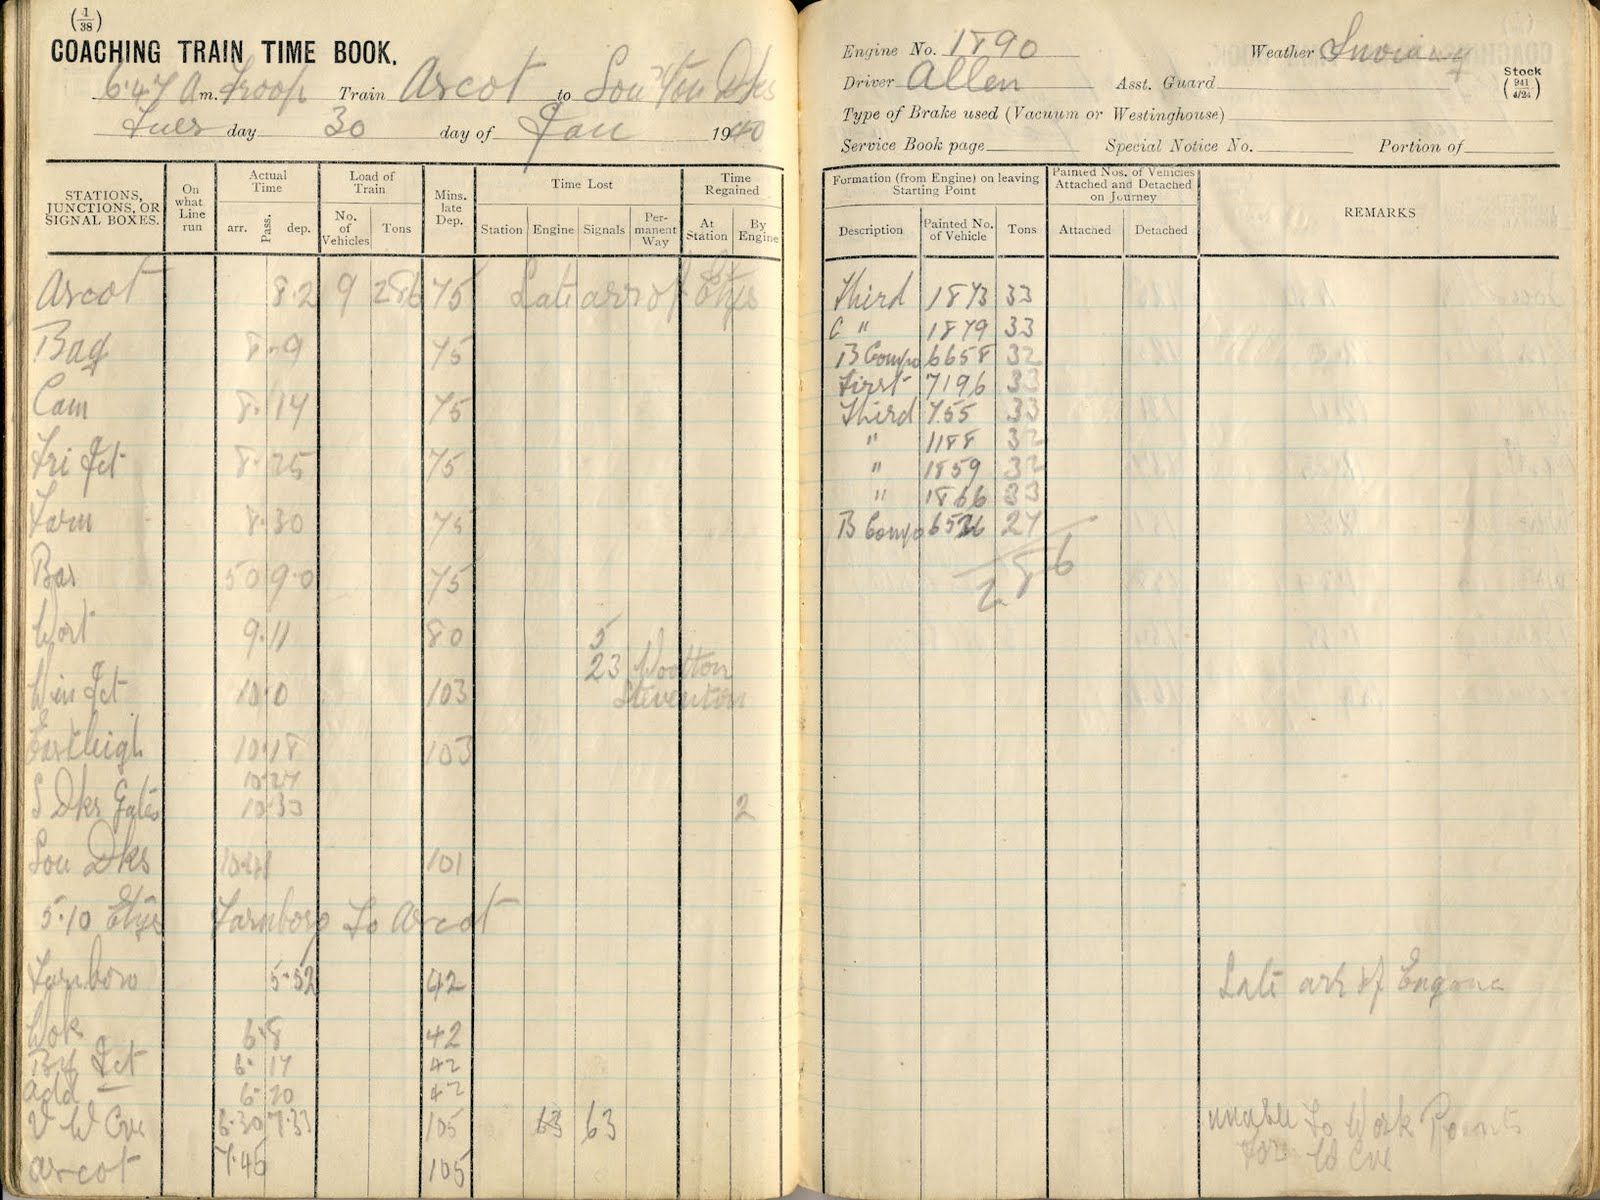 (1/38)
COACHING TRAIN TIME BOOK.
6.47 Am. Troop Train Ascot to Sou'ton Dks
Tues day 30 day of Jan 1940
STATIONS, JUNCTIONS, OR SIGNAL BOXES. On what Line run Actual Time arr. Pass. dep. Load of Train No. of Vehicles Tons Mins. late Dep. Time Lost Station Engine Signals Permanent Way Time Regained At Station By Engine
Ascot 8.2 9 286 75 Late arr of Etys
Bag 8.9 75
Cam 8.14 75
Fri Jct 8.25 75
Farn 8.30 75
Bas 50 9.0 75
Wort 9.11 80 5
23 Wootton
Win Jct 10.0 103 Steventon
Eastleigh 10.18 103
10.27
S Dks Gates 10.33 2
Sou Dks 101
5.10 Etys Farnboro To Ascot
Farnboro 5.52 42
Wok 6.8 42
Jct 6.17 42
Add 6.20 42
V W Cve 6.30 7.33 105 63 63
Ascot 7.45 105
Engine No. 1890 Weather Snowing
Driver Allen Asst. Guard
Stock (941 4/24)
Type of Brake used (Vacuum or Westinghouse)
Service Book page Special Notice No. Portion of
Formation (from Engine) on leaving Starting Point Description Painted No. of Vehicle Tons Painted Nos. of Vehicles Attached and Detached on Journey Attached Detached REMARKS
Third 1873 33
C " 1879 33
B Compo 6658 32
First 7196 33
Third 755 33
" 1188 32
" 1859 32
" 1866 33
B Compo 27
286
Late arr of Engine
unable To Work Points
for W Cve